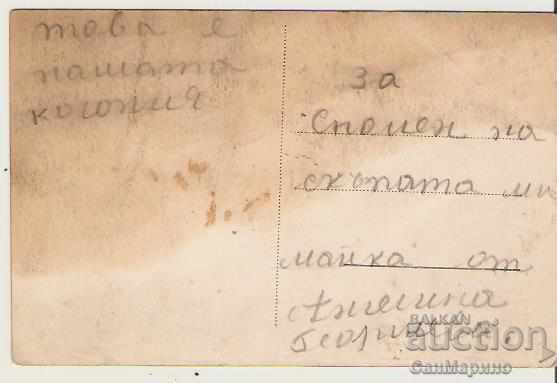 това е
нашата
колония
За
Спомен на
скъпата ми
майка от
Ангелина
BALKAN
auction
СанМарино